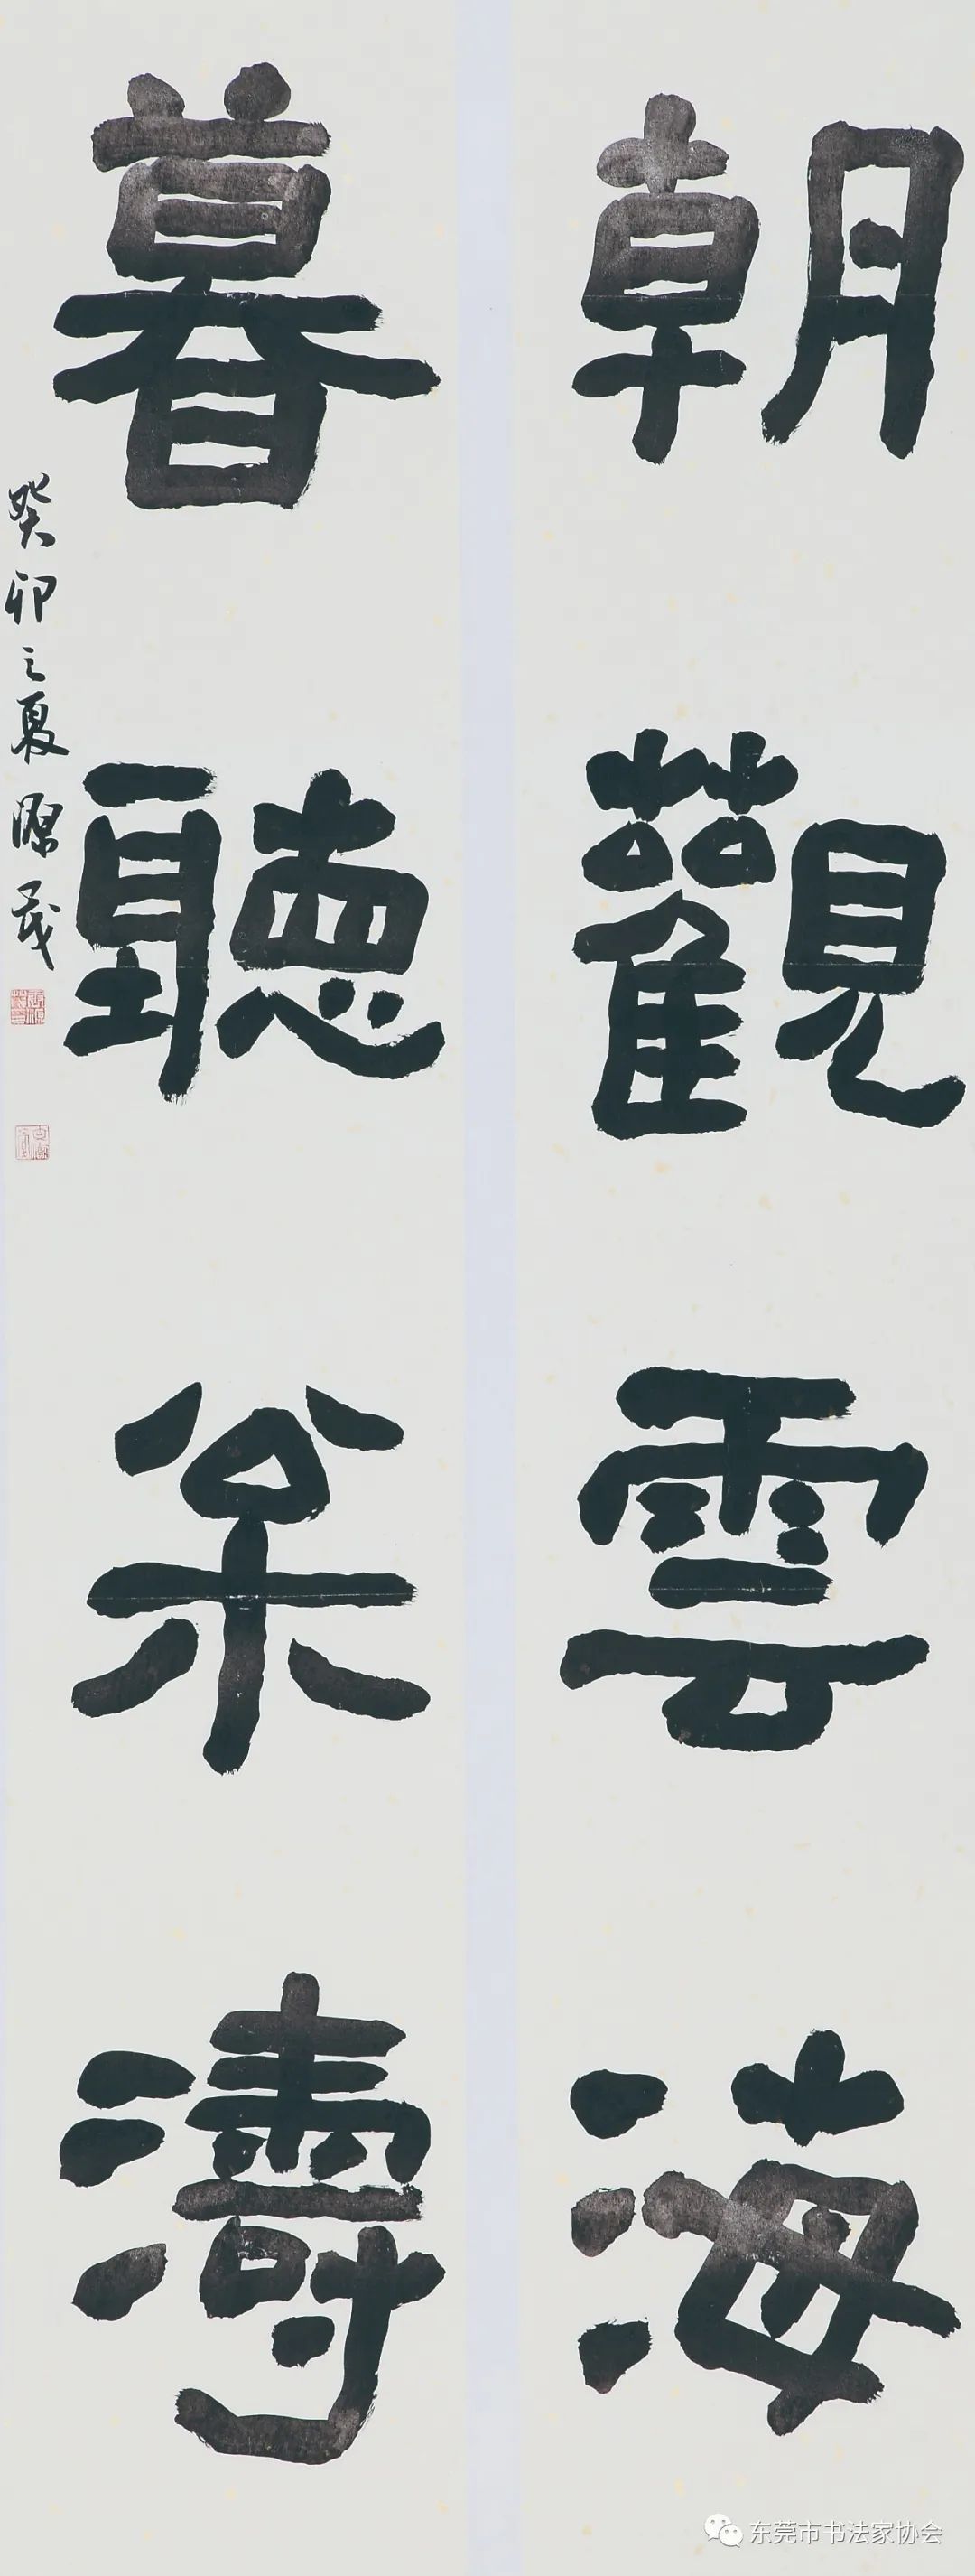 朝觀雲海
暮聽枀濤
癸卯之夏源茂
东莞市书法家协会